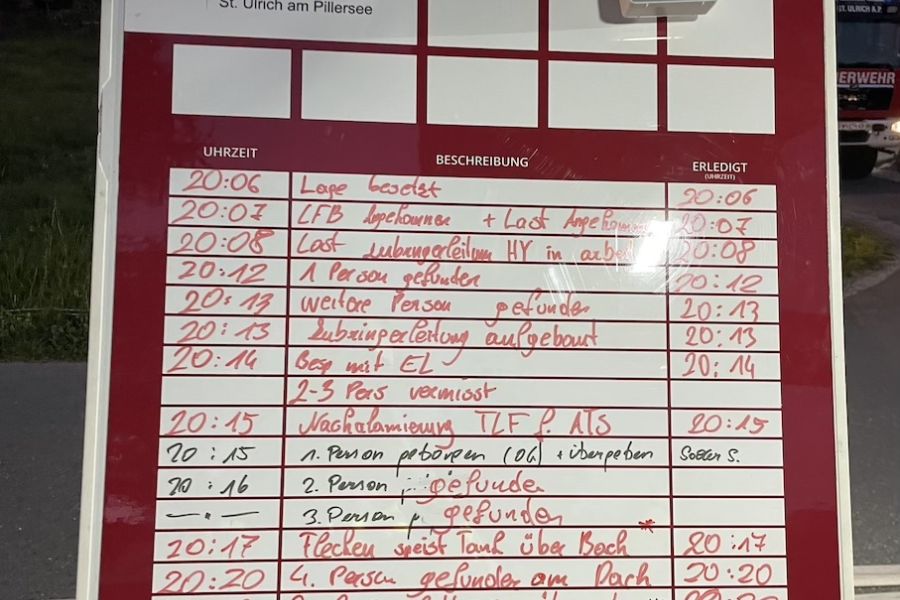 St. Ulrich am Pillersee
ST. ULRICH A.P.
ERWEHR
UHRZEIT BESCHREIBUNG ERLEDIGT
(UHRZEIT)
20:06 Lage besetzt 20:06
20:07 LFB Angekommen + Last Angekommen 20:07
20:08 Last Zubringerleitung HY in arbeit 20:08
20:12 1 Person gefunden 20:12
20:13 weitere Person gefunden 20:13
20:13 Zubringerleitung aufgebaut 20:13
20:14 Besp mit EL 20:14
2-3 Pers vermisst
20:15 Nachalamierung TLF f. ATS 20:15
20:15 1. Person geborgen (OG) + übergeben S.
20:16 2. Person gefunden
—.— 3. Person gefunden
20:17 Flecken speist Tank über Bach * 20:17
20:20 4. Person gefunden am Dach 20:20